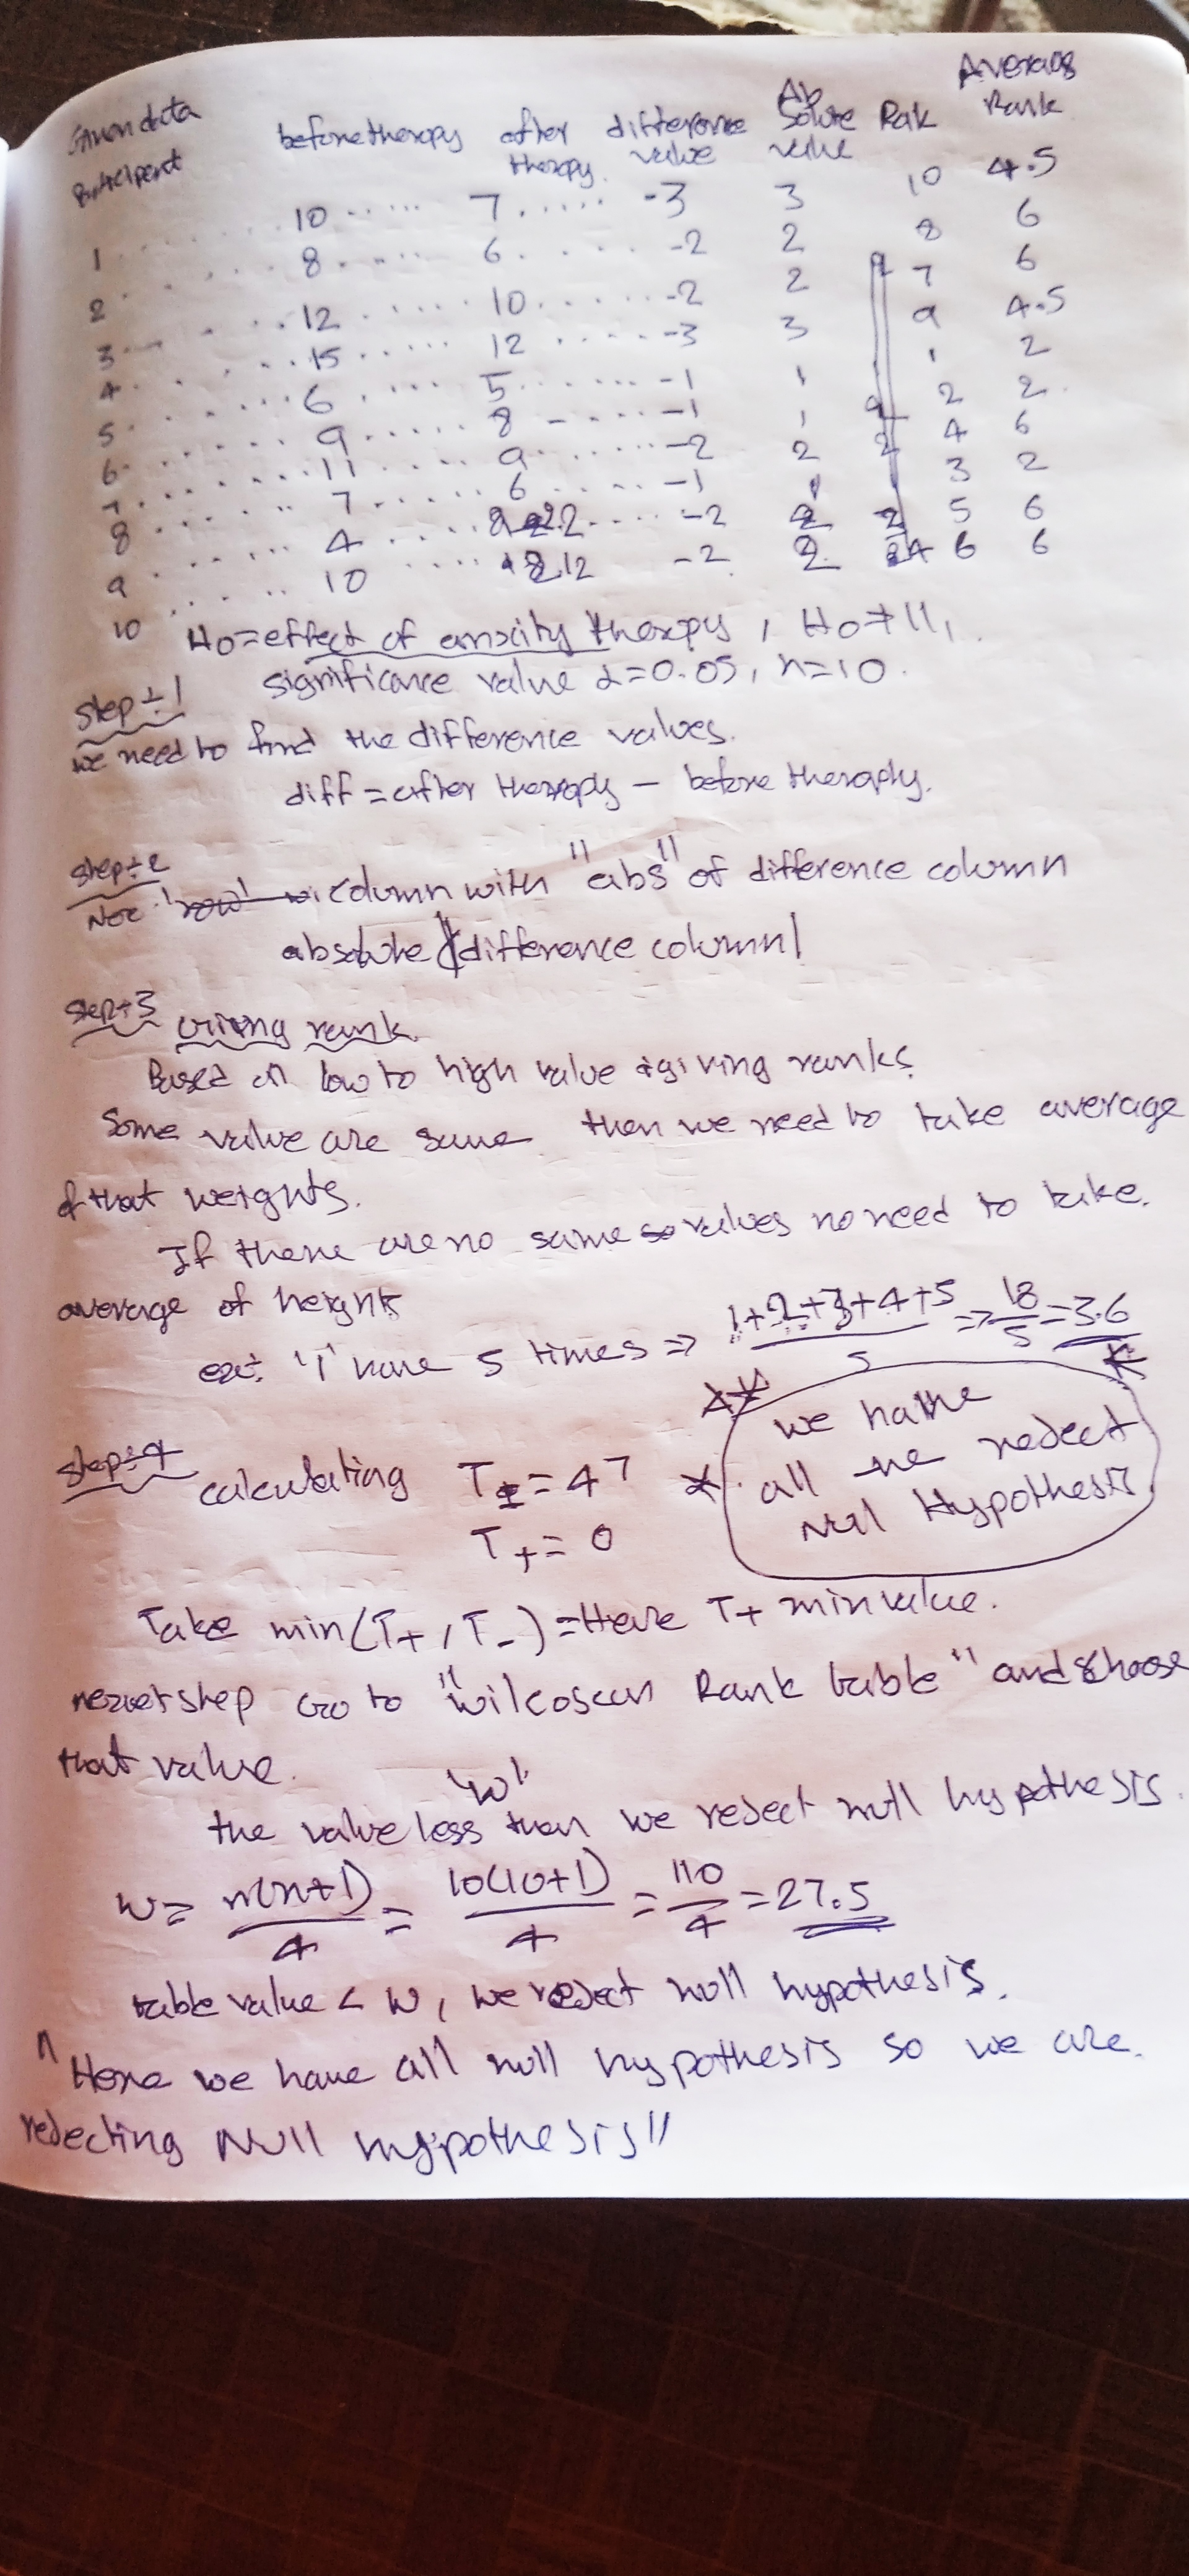 Given data participant before therapy after therapy difference value Absolute value Rak Average Rank
1 10 7 -3 3 10 4.5
2 8 6 -2 2 8 6
3 12 10 -2 2 7 6
4 15 12 -3 3 9 4.5
5 6 5 -1 1 1 2
6 9 8 -1 1 2 2
7 11 9 -2 2 4 6
8 7 6 -1 1 3 2
9 4 2 -2 2 5 6
10 10 12 -2 2 6 6
H0 = effect of anxcity therapy, H0 ≠ H1,
significance value α=0.05, n=10.
step÷1
we need to find the difference values.
diff = after therapy - before theraply.
step÷2
column with "abs" of difference column
absolute |difference column|
step÷3 giving rank.
Based on low to high value giving ranks
Some value are same then we need to take average
of that weights.
If there are no same values no need to take.
average of heights
ex: '1' have 5 times => 1+2+3+4+5/5 => 18/5 = 3.6
step÷4 calculating T- = 47
T+ = 0
we have all -ve redect Null Hypothesis
Take min(T+, T-) = Here T+ min value.
step Go to "wilcoscan Rank table" and choose
that value.
the value less than 'w' we resect null hypothesis.
w = n(n+1)/4 = 10(10+1)/4 = 110/4 = 27.5
table value < w, we resect null hypothesis.
"Here we have all null hypothesis so we are.
redecting Null hypothesis"